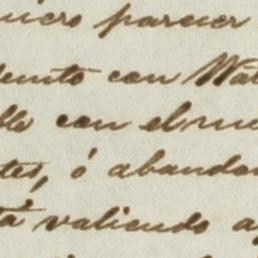 uiero parecer
iento con Wa
ble con el mu
tes, ó abandon
tá valiendo a